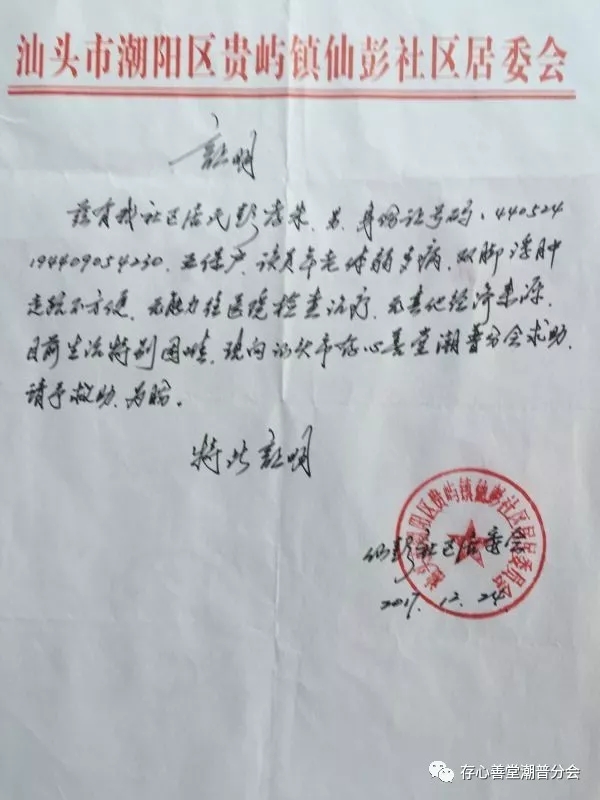 汕头市潮阳区贵屿镇仙彭社区居委会
证明
兹有我社区居民彭孝荣、男、身份证号码:440524
194409054230.五保户,该员年老体弱多病,双脚浮肿
走路不方便,无能力往医院检查治疗,无其他经济来源.
目前生活特别困难,现向汕头市存心善堂潮普分会求助,
请予救助,为盼。
特此证明
仙彭社区居委会
2017.12.24
汕头市潮阳区贵屿镇仙彭社区居民委员会
存心善堂潮普分会